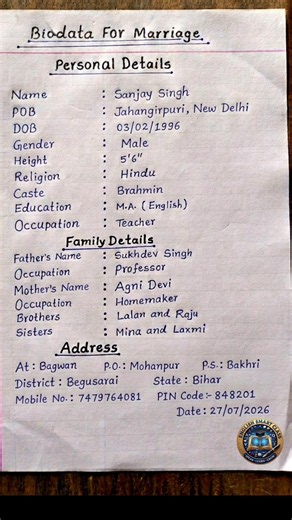 Biodata For Marriage
Personal Details
Name : Sanjay Singh
POB : Jahangirpuri, New Delhi
DOB : 03/02/1996
Gender : Male
Height : 5'6"
Religion : Hindu
Caste : Brahmin
Education : M.A. (English)
Occupation : Teacher
Family Details
Father's Name : Sukhdev Singh
Occupation : Professor
Mother's Name : Agni Devi
Occupation : Homemaker
Brothers : Lalan and Raju
Sisters : Mina and Laxmi
Address
At : Bagwan P.O.: Mohanpur P.S.: Bakhri
District : Begusarai State : Bihar
Mobile No.: 7479764081 PIN Code:- 848201
Date: 27/07/2026
ENGLISH SMART CLASS